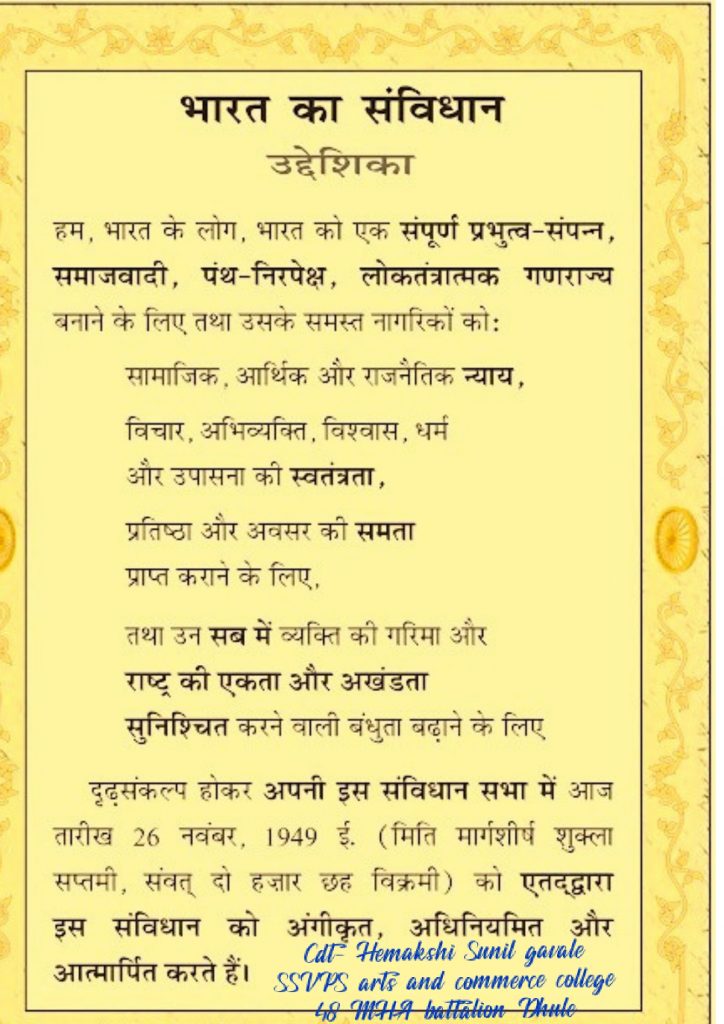 भारत का संविधान
उद्देशिका
हम, भारत के लोग, भारत को एक संपूर्ण प्रभुत्व-संपन्न,
समाजवादी, पंथ-निरपेक्ष, लोकतंत्रात्मक गणराज्य
बनाने के लिए तथा उसके समस्त नागरिकों को:
सामाजिक, आर्थिक और राजनैतिक न्याय,
विचार, अभिव्यक्ति, विश्वास, धर्म
और उपासना की स्वतंत्रता,
प्रतिष्ठा और अवसर की समता
प्राप्त कराने के लिए,
तथा उन सब में व्यक्ति की गरिमा और
राष्ट्र की एकता और अखंडता
सुनिश्चित करने वाली बंधुता बढ़ाने के लिए
दृढ़संकल्प होकर अपनी इस संविधान सभा में आज
तारीख 26 नवंबर, 1949 ई. (मिति मार्गशीर्ष शुक्ला
सप्तमी, संवत् दो हज़ार छह विक्रमी) को एतद्द्वारा
इस संविधान को अंगीकृत, अधिनियमित और
आत्मार्पित करते हैं।
Cdt- Hemakshi Sunil gavale
SSVPS arts and commerce college
48 MHA battalion Dhule